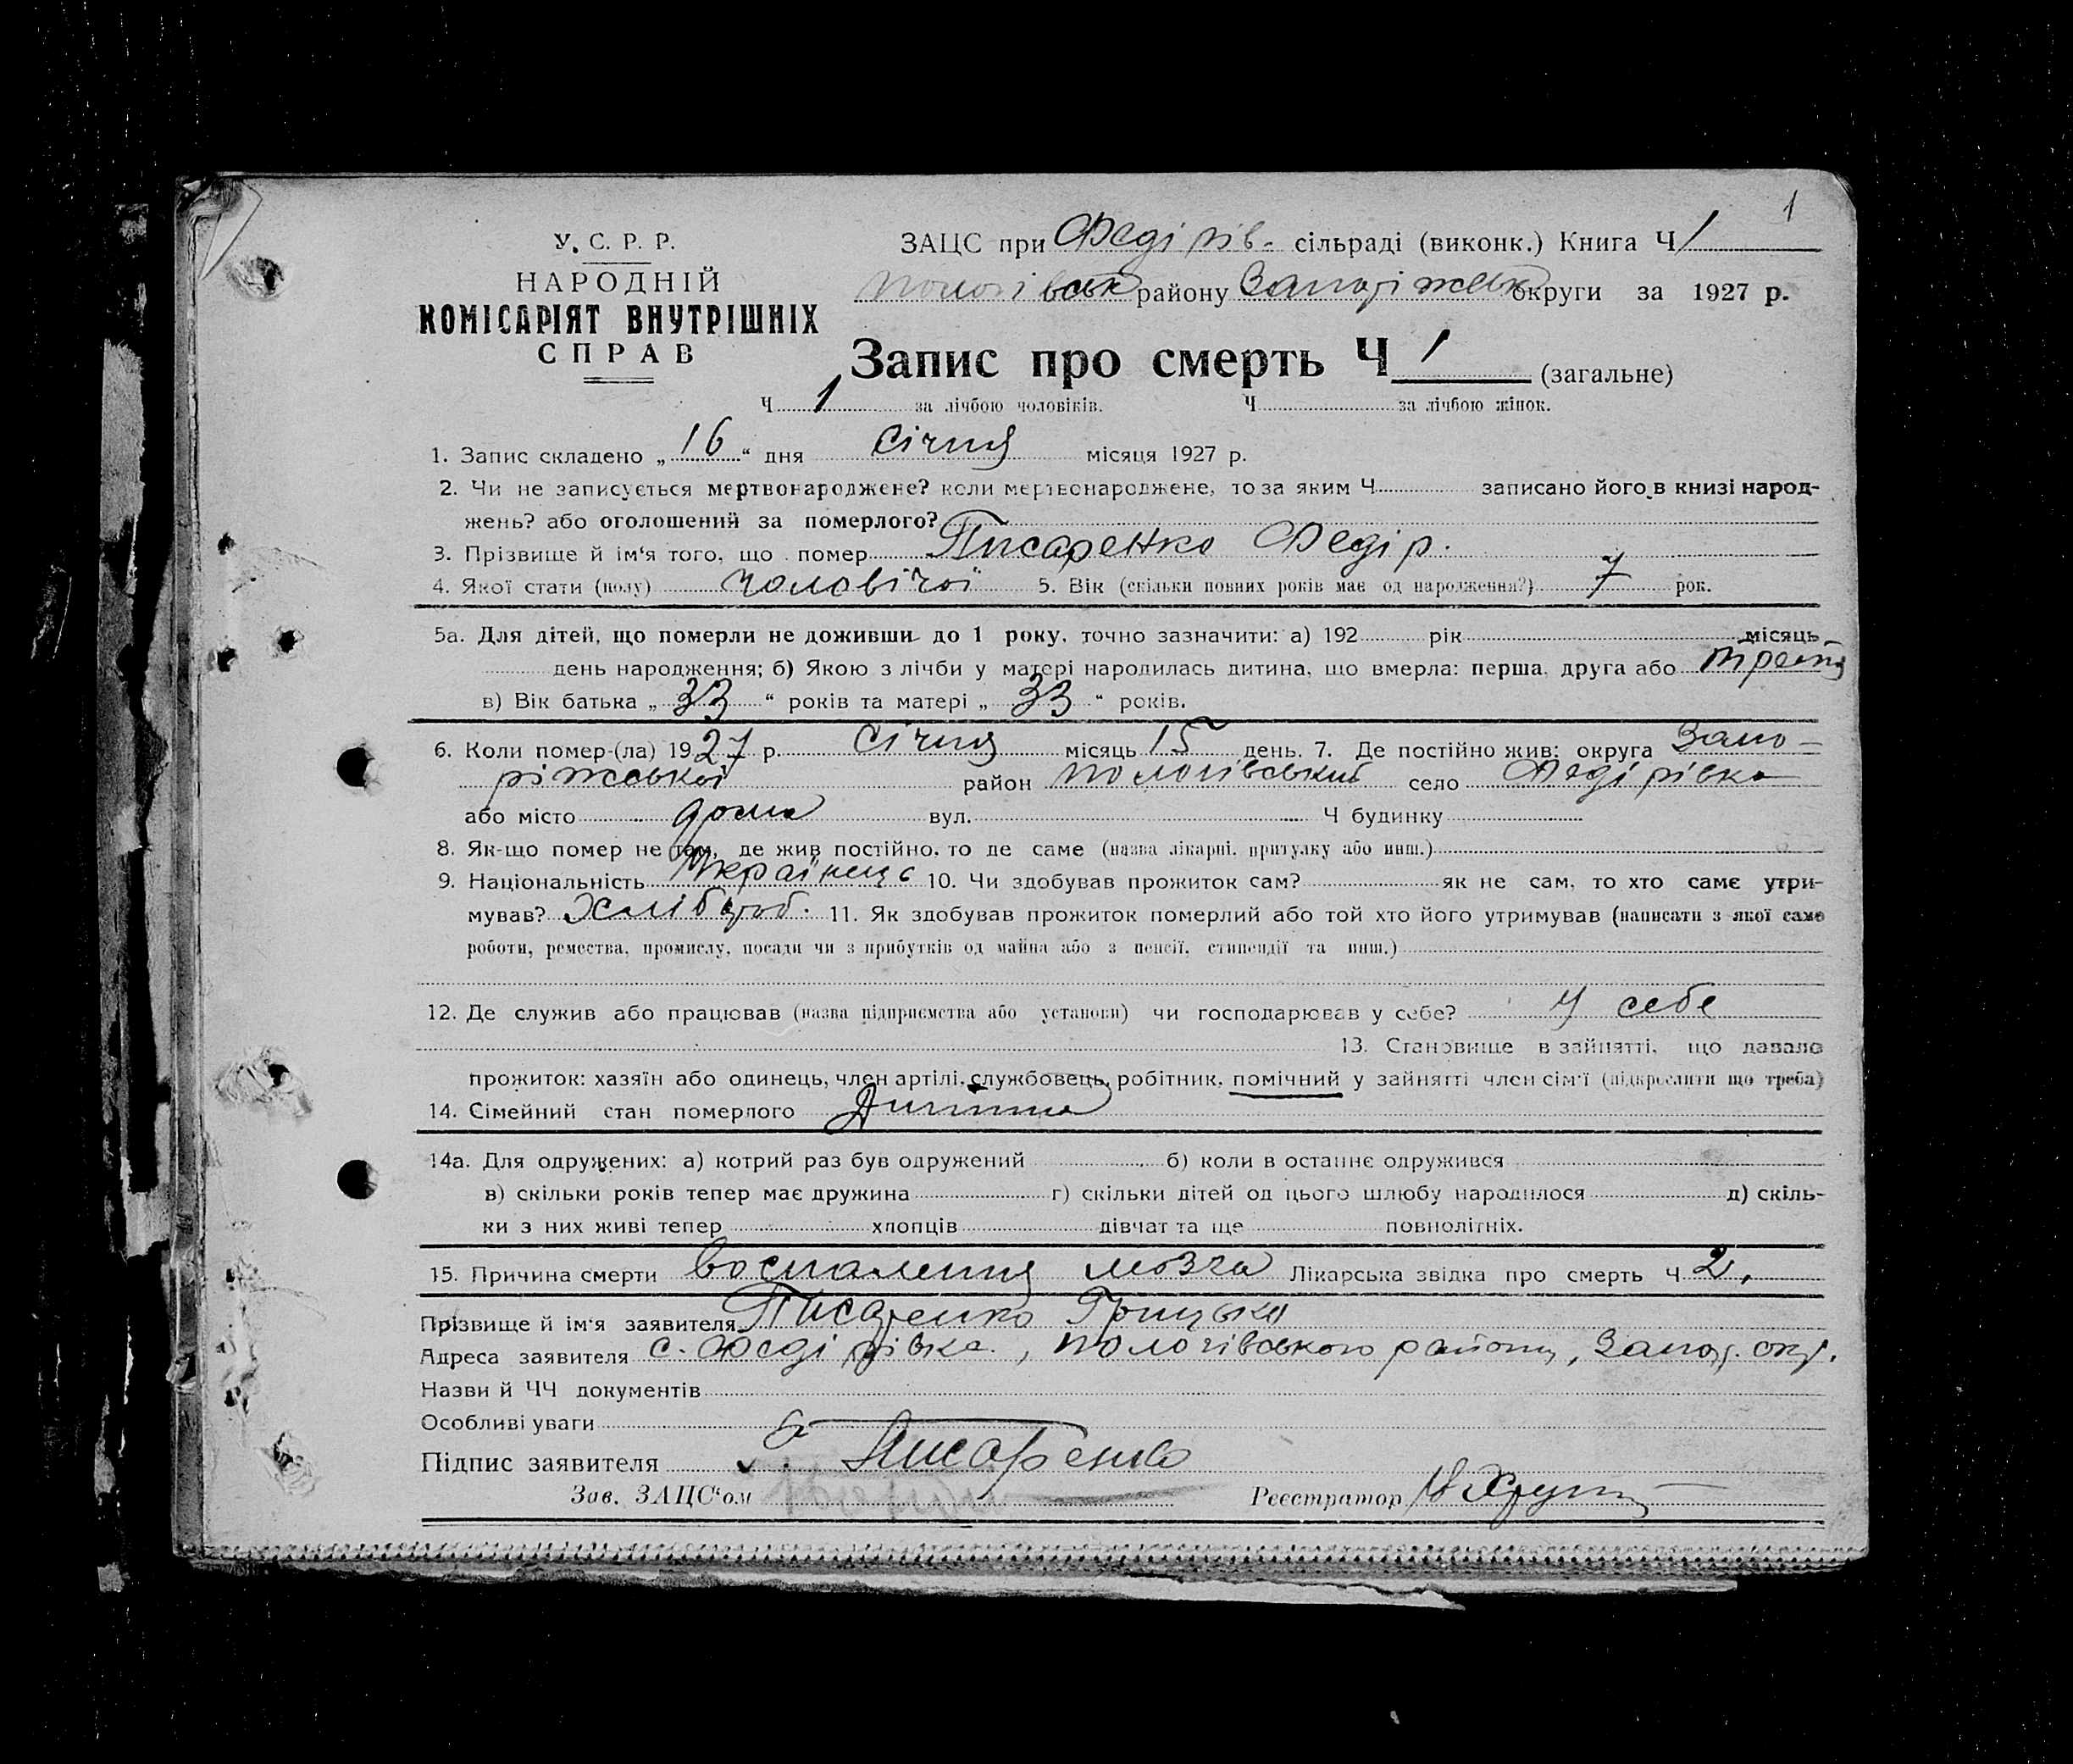 1
У. С. Р. Р.
НАРОДНІЙ
КОМІСАРІЯТ ВНУТРІШНІХ
СПРАВ
ЗАЦС при Федірів- сільраді (виконк.) Книга Ч 1
Пологівськ району Запоріжськ округи за 1927 р.
Запис про смерть Ч 1 (загальне)
Ч 1 за лічбою чоловіків. Ч за лічбою жінок.
1. Запис складено „ 16 “ дня Січня місяця 1927 р.
2. Чи не записується мертвонароджене? коли мертвонароджене, то за яким Ч записано його в книзі народ-
жень? або оголошений за померлого?
3. Прізвище й ім‘я того, що помер Писаренко Федір.
4. Якої стати (полу) чоловічої 5. Вік (скільки повних років має од народження?) 7 рок.
5а. Для дітей, що померли не доживши до 1 року, точно зазначити: а) 192 рік місяць
день народження; б) Якою з лічби у матері народилась дитина, що вмерла: перша, друга або
в) Вік батька „ 33 “ років та матері „ 33 “ років.
6. Коли помер-(ла) 1927 р. Січня місяць 15 день. 7. Де постійно жив: округа Запо-
ріжської район Пологівський село Федірівка
або місто дома вул. Ч будинку
8. Як-що помер не там, де жив постійно, то де саме (назва лікарні, притулку або инш.)
9. Національність Українець 10. Чи здобував прожиток сам? як не сам, то хто саме утри-
мував? Хлібороб. 11. Як здобував прожиток померлий або той хто його утримував (написати з якої саме
роботи, ремества, промислу, посади чи з прибутків од майна або з пенсії, стипендії та инш.)
12. Де служив або працював (назва підприємства або установи) чи господарював у себе? У себе
13. Становище в зайнятті, що давало
прожиток: хазяїн або одинець, член артілі, службовець, робітник, помічний у зайнятті член сім‘ї (підкреслити що треба)
14. Сімейний стан померлого Дитина
14а. Для одружених: а) котрий раз був одружений б) коли в останнє одружився
в) скільки років тепер має дружина г) скільки дітей од цього шлюбу народилося д) скіль-
ки з них живі тепер хлопців дівчат та ще повнолітніх.
15. Причина смерти воспаления мозга Лікарська звідка про смерть Ч 2.
Прізвище й ім‘я заявителя Писаренко Грицько
Адреса заявителя с. Федірівка, Пологівського району, Запор. окр.
Назви й ЧЧ документів
Особливі уваги
Підпис заявителя Г. Писаренко
Зав. ЗАЦС‘ом Реєстратор